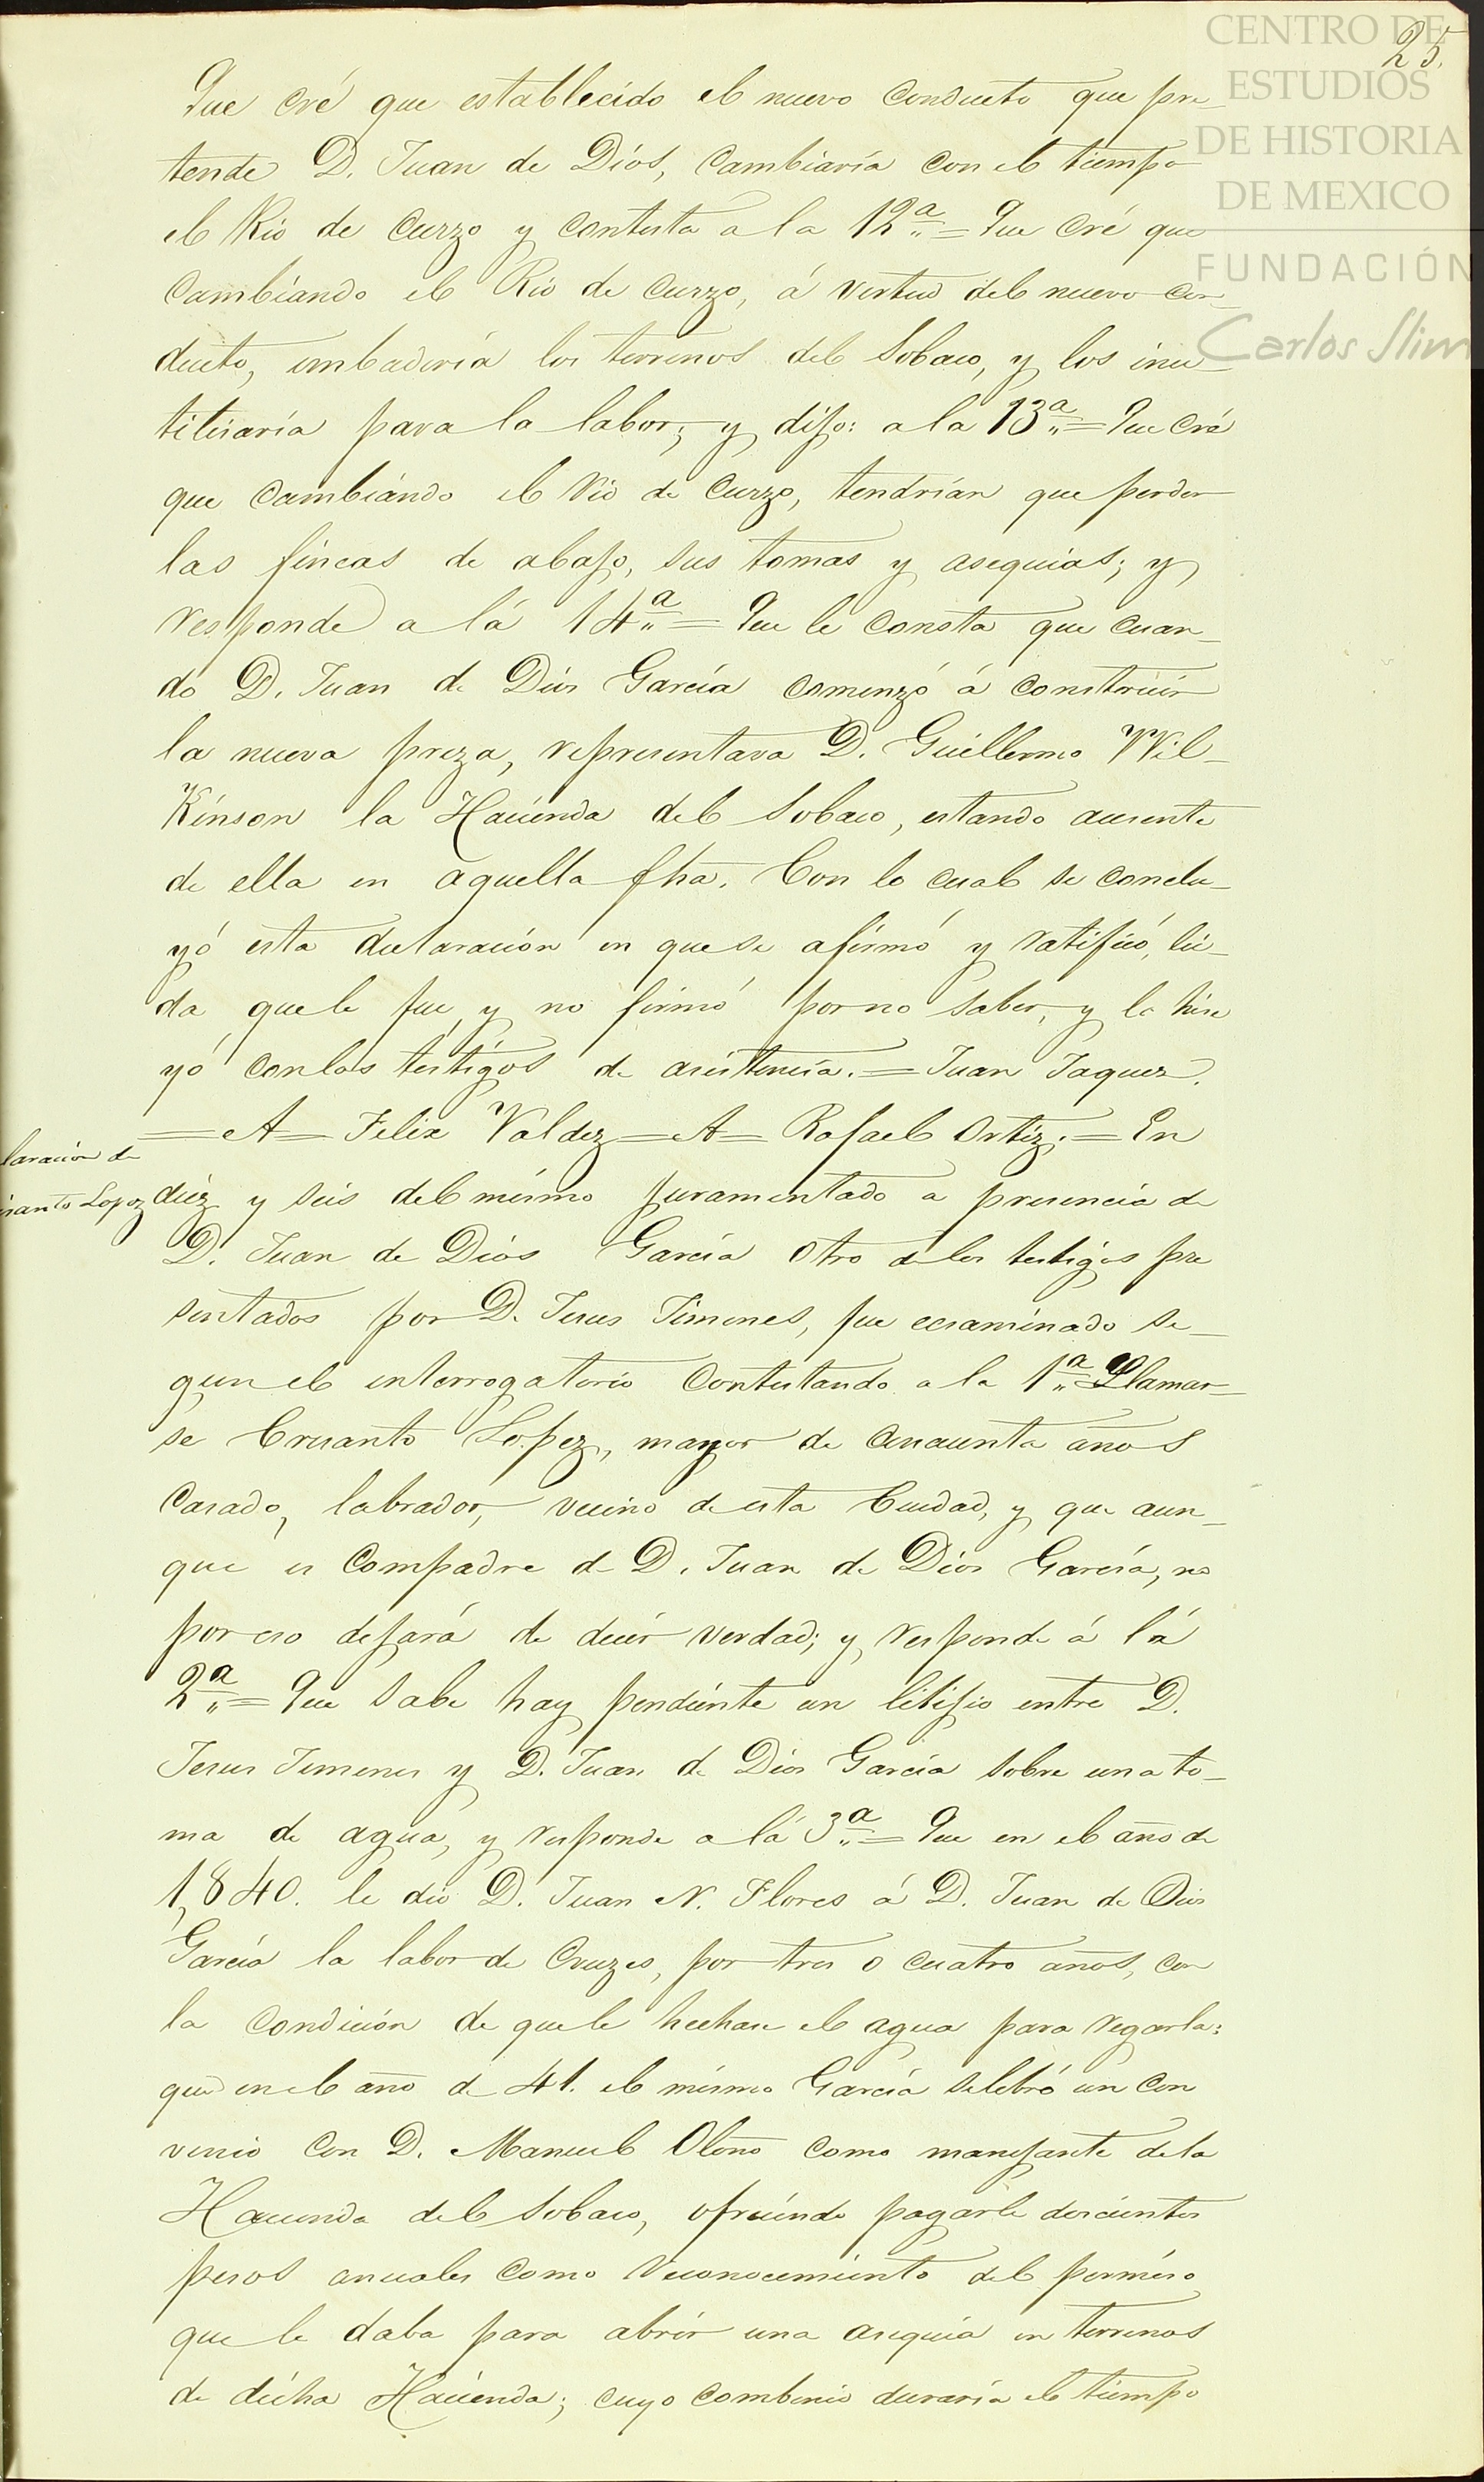 25.
CENTRO DE
ESTUDIOS
DE HISTORIA
DE MEXICO
FUNDACIÓN
Carlos Slim
Que cré que establecido el nuevo conducto que pre_
tende D. Juan de Dios, cambiaría con el tiempo
el Rio de curzo y contesta a la 12ª = Que cré que
cambiando el Rio de curzo, á vertud del nuevo con_
ducto, imbadiría los terrenos del Sobaco, y los inu_
tilisaría para la labor; y dijo: a la 13ª = Que cré
que cambiándo el rio de curzo, tendrían que perder
las fincas de abajo, sus tomas y asequias; y
responde a lá 14ª = Que le consta que cuan_
do D. Juan de Dios García comenzó á construir
la nueva preza, representava D. Guillermo Wil_
Kinson la Haciénda del Sobaco, estando ausente
de ella en aquella fha. Con lo cual se conclu_
yó esta declaración en que se afirmó y ratificó, lei_
da que le fue, y no firmó por no saber, y lo hise
yó con los testigos de asistencia. = Juan Jaquez.
= A = Felix Valdez = A = Rafael Ortiz. = En
laracion de
isanto Lopez
diéz y seis del mismo juramentado a presencia de
D. Juan de Dios García otro de los testigos pre
sentados por D. Jesus Jimenes, fue ecsaminado se_
gun el interrogatorio contestando a la 1ª Llamar_
se Crisanto Lopez, mayor de cincuenta años
casado, labrador, vecino de esta Ciudad, y que aun_
que es compadre de D. Juan de Dios García, no
por eso dejará de decir verdad; y responde á lá
2ª = Que sabe hay pendiénte un litijio entre D.
Jesus Jimenes y D. Juan de Dios García sobre una to_
ma de agua, y responde a lá 3ª = Que en el año de
1,840. le dió D. Juan N. Flores á D. Juan de Dios
García la labor de Cruzes, por tres o cuatro años, con
la condición de que le hechase el agua para regarla:
que en el año de 41. el mismo García selebró un con
venio con D. Manuel Olono como manejante de la
Hacienda del Sobaco, ofreciéndo pagarle dosciéntos
pesos anuales como reconocimiénto del permiso
que le daba para abrir una asequia en terrenos
de dicha Haciénda; cuyo combenio duraría el tiempo